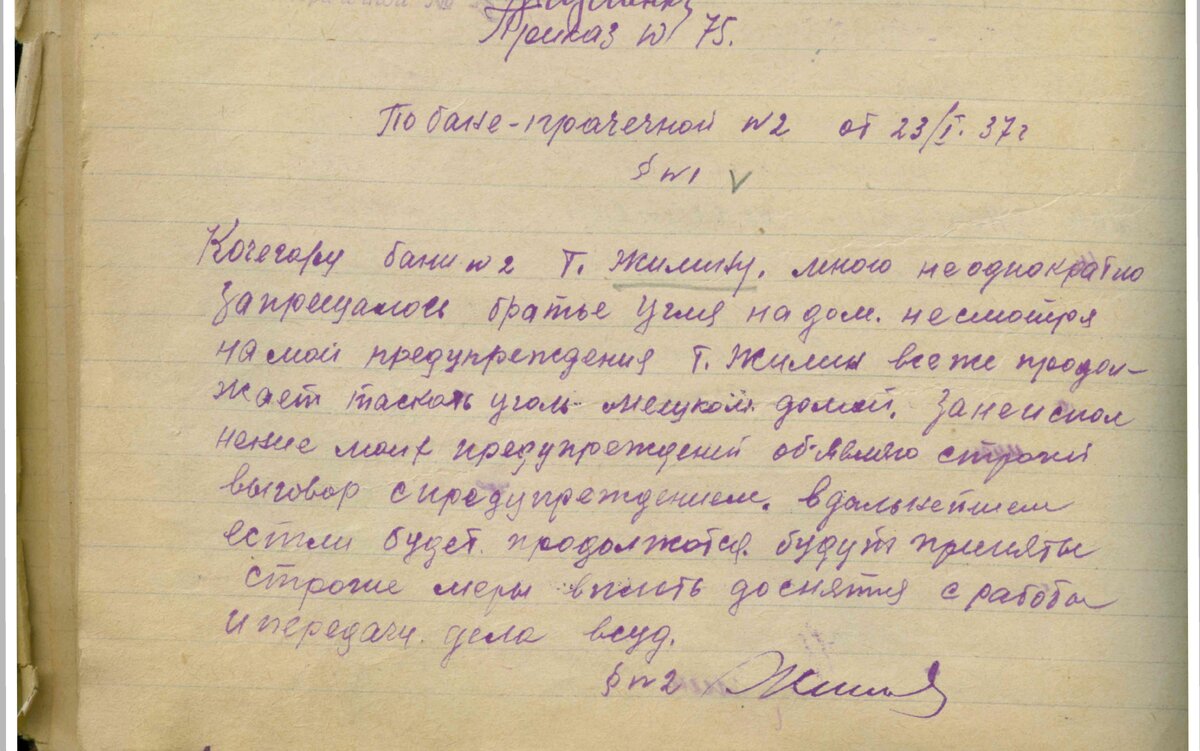 Приказ № 75.
По бане-прачечной №2 от 23/I. 37г
§ №1 V
Кочегару бани №2 Т. Жилину. мною неоднократно
Запрещалось братье Угля на дом. несмотря
на мои предупреждения Т. Жилин всеже продол-
жает таскать уголь мешком домой. За неиспол
нение моих предупреждений об'являю строгий
выговор с предупреждением. в дальнейшем
естли будет продолжатся будут приняты
строгие меры вплоть доснятия с работы
и передачи дела всуд.
§ №2